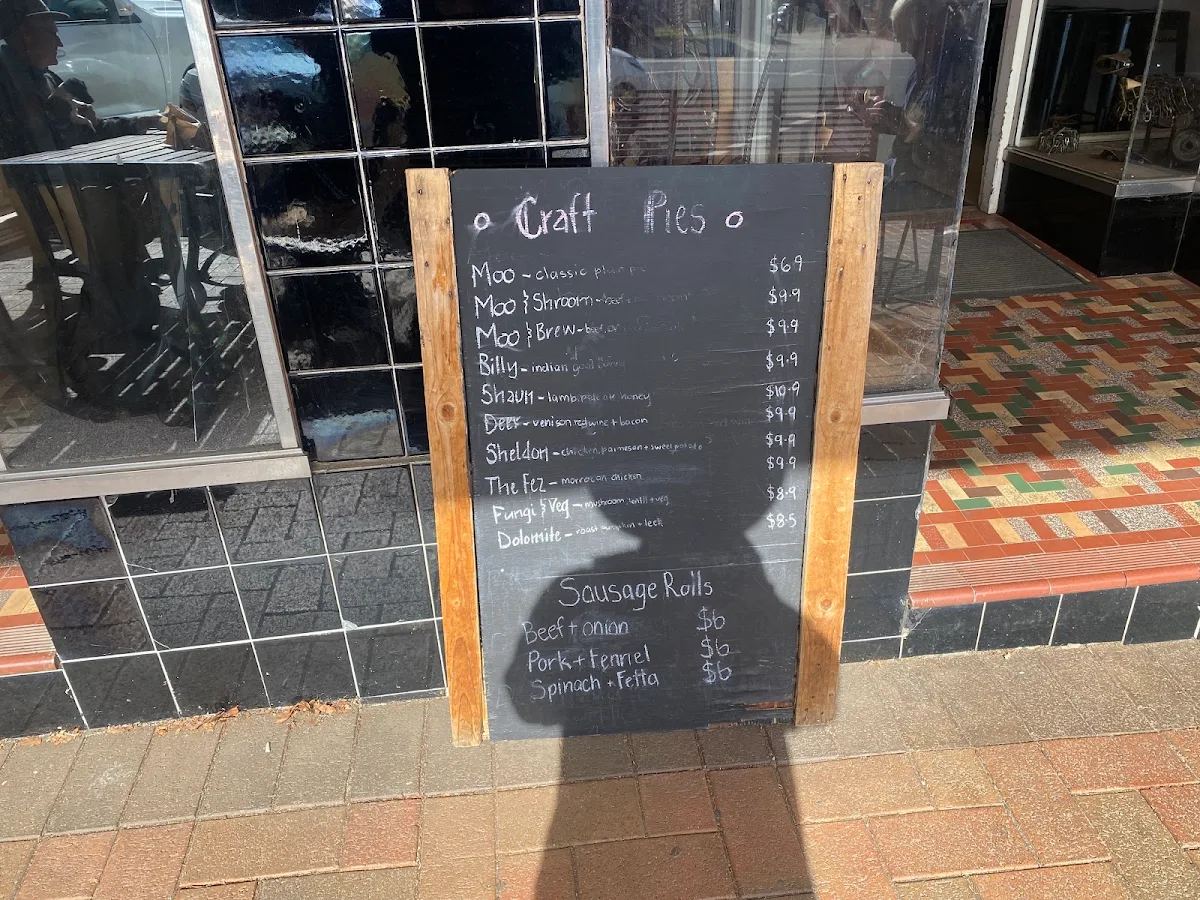 o Craft Pies o
Moo - classic $6.9
Moo & Shroom - beef + $9.9
Moo & Brew - beef, $9.9
Billy - indian goat curry $9.9
Shaun - lamb, honey $10.9
Deer - venison red wine + bacon $9.9
Sheldon - chicken, parmesan + sweet potato $9.9
The Fez - morrocan chicken $9.9
Fungi & Veg - mushroom, lentil + veg $8.9
Dolomite - roast pumpkin + leek $8.5
Sausage Rolls
Beef + onion $6
Pork + Fennel $6
Spinach + Fetta $6